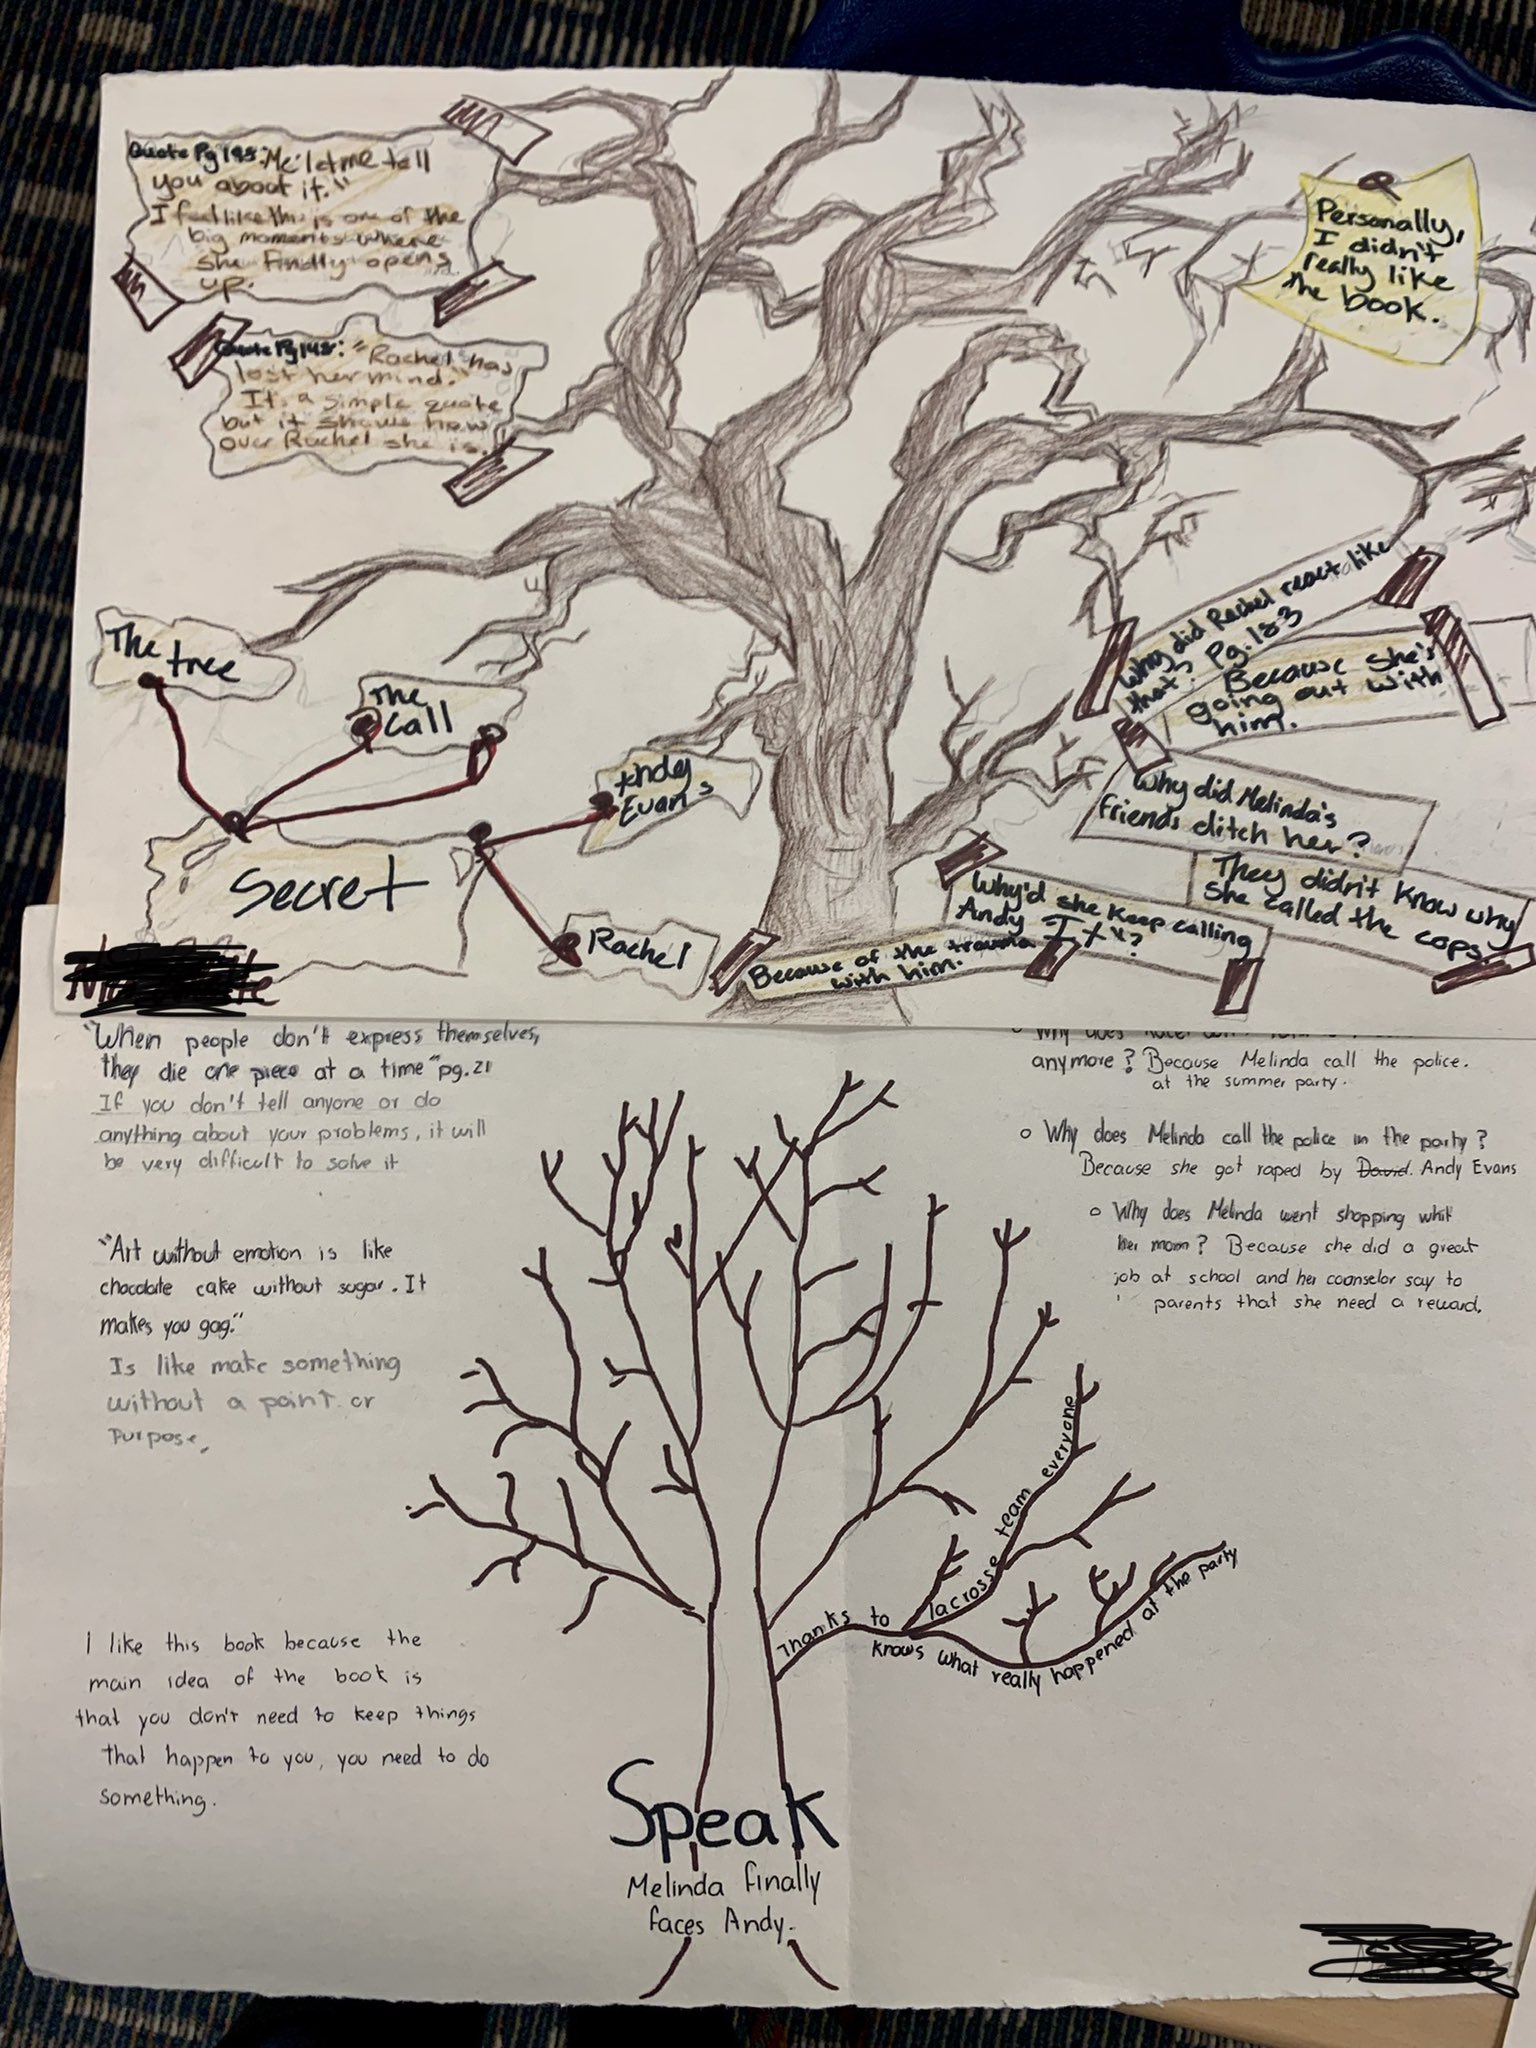 Quote Pg 195: "Me: let me tell
you about it."
I feel like this is one of the
big moments where
she findly opens
up.
Quote Pg 148: "Rachel has
lost her mind."
It's a simple quote
but it shows how
over Rachel she is.
Personally,
I didn't
really like
the book.
The tree
The
call
Andy
Evans
Secret
Rachel
Why did Rachel react like
that? Pg. 183
Because she's
going out with
him.
Why did Melinda's
friends ditch her?
They didn't know why
she called the cops.
Why'd she keep calling
Andy "IT"?
Because of the trauma
with him.
"When people don't express themselves,
they die one piece at a time" pg. 21
If you don't tell anyone or do
anything about your problems, it will
be very difficult to solve it
"Art without emotion is like
chocolate cake without sugar. It
makes you gag."
Is like make something
without a point or
Purpose,
I like this book because the
main idea of the book is
that you don't need to keep things
that happen to you, you need to do
something.
Why does
anymore? Because Melinda call the police.
at the summer party.
Why does Melinda call the police in the party?
Because she got raped by David. Andy Evans
Why does Melinda went shopping whit
her mom? Because she did a great
job at school and her counselor say to
parents that she need a reward.
Thanks to lacrosse team everyone
knows what really happened at the party
Speak
Melinda finally
faces Andy.